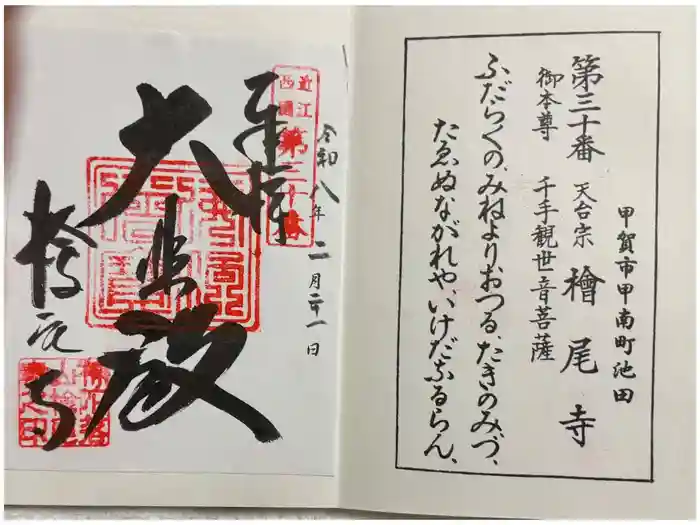 甲賀市甲南町池田
第三十番 天台宗 檜尾寺
御本尊 千手観世音菩薩
ふだらくの、みねよりおつる、たきのみづ、
たゑぬながれや、いけだなるらん、
令和八年二月二十一日
近江
西國
第三十番
奉拝
大悲殿
檜尾寺